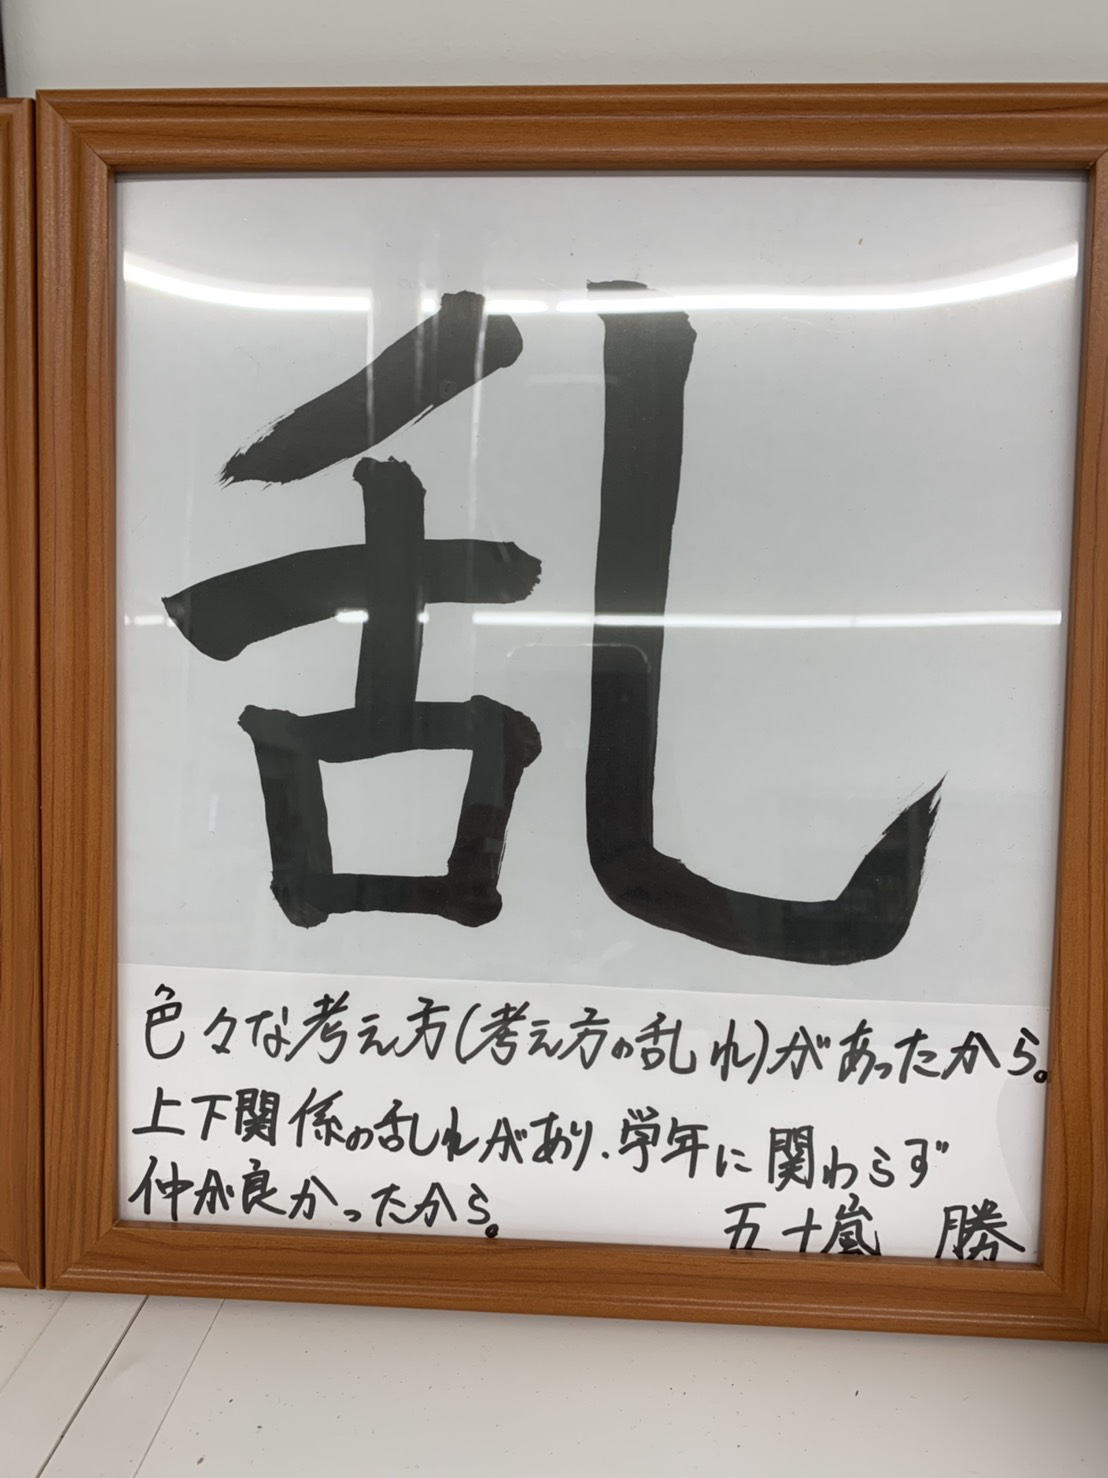 乱
色々な考え方(考え方の乱れ)があったから。
上下関係の乱れがあり、学年に関わらず
仲が良かったから。
五十嵐 勝